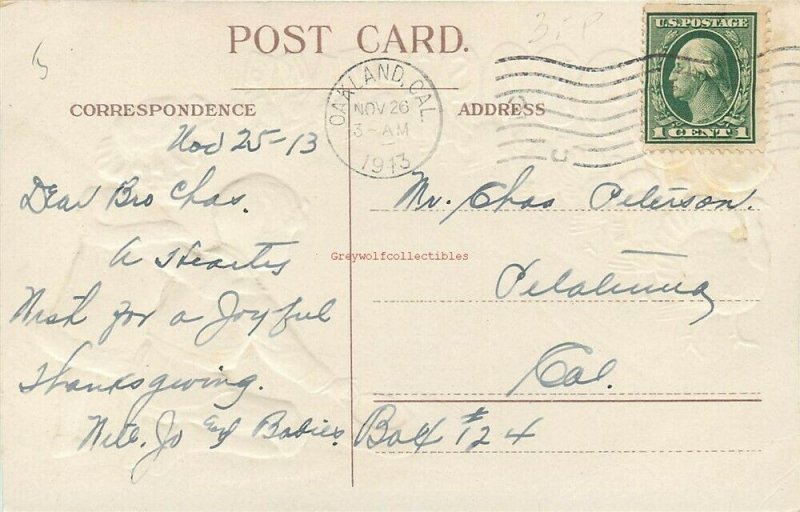 POST CARD.
U.S. POSTAGE
1 CENT 1
OAKLAND, CAL.
NOV 26
3-AM
1913
CORRESPONDENCE
ADDRESS
Nov 25-13
Dear Bro Chas.
A Hearty
Wish for a Joyful
Thanksgiving.
Jo and Babies.
Mr. Chas Peterson.
Petaluma
Cal.
Box #124
Greywolfcollectibles